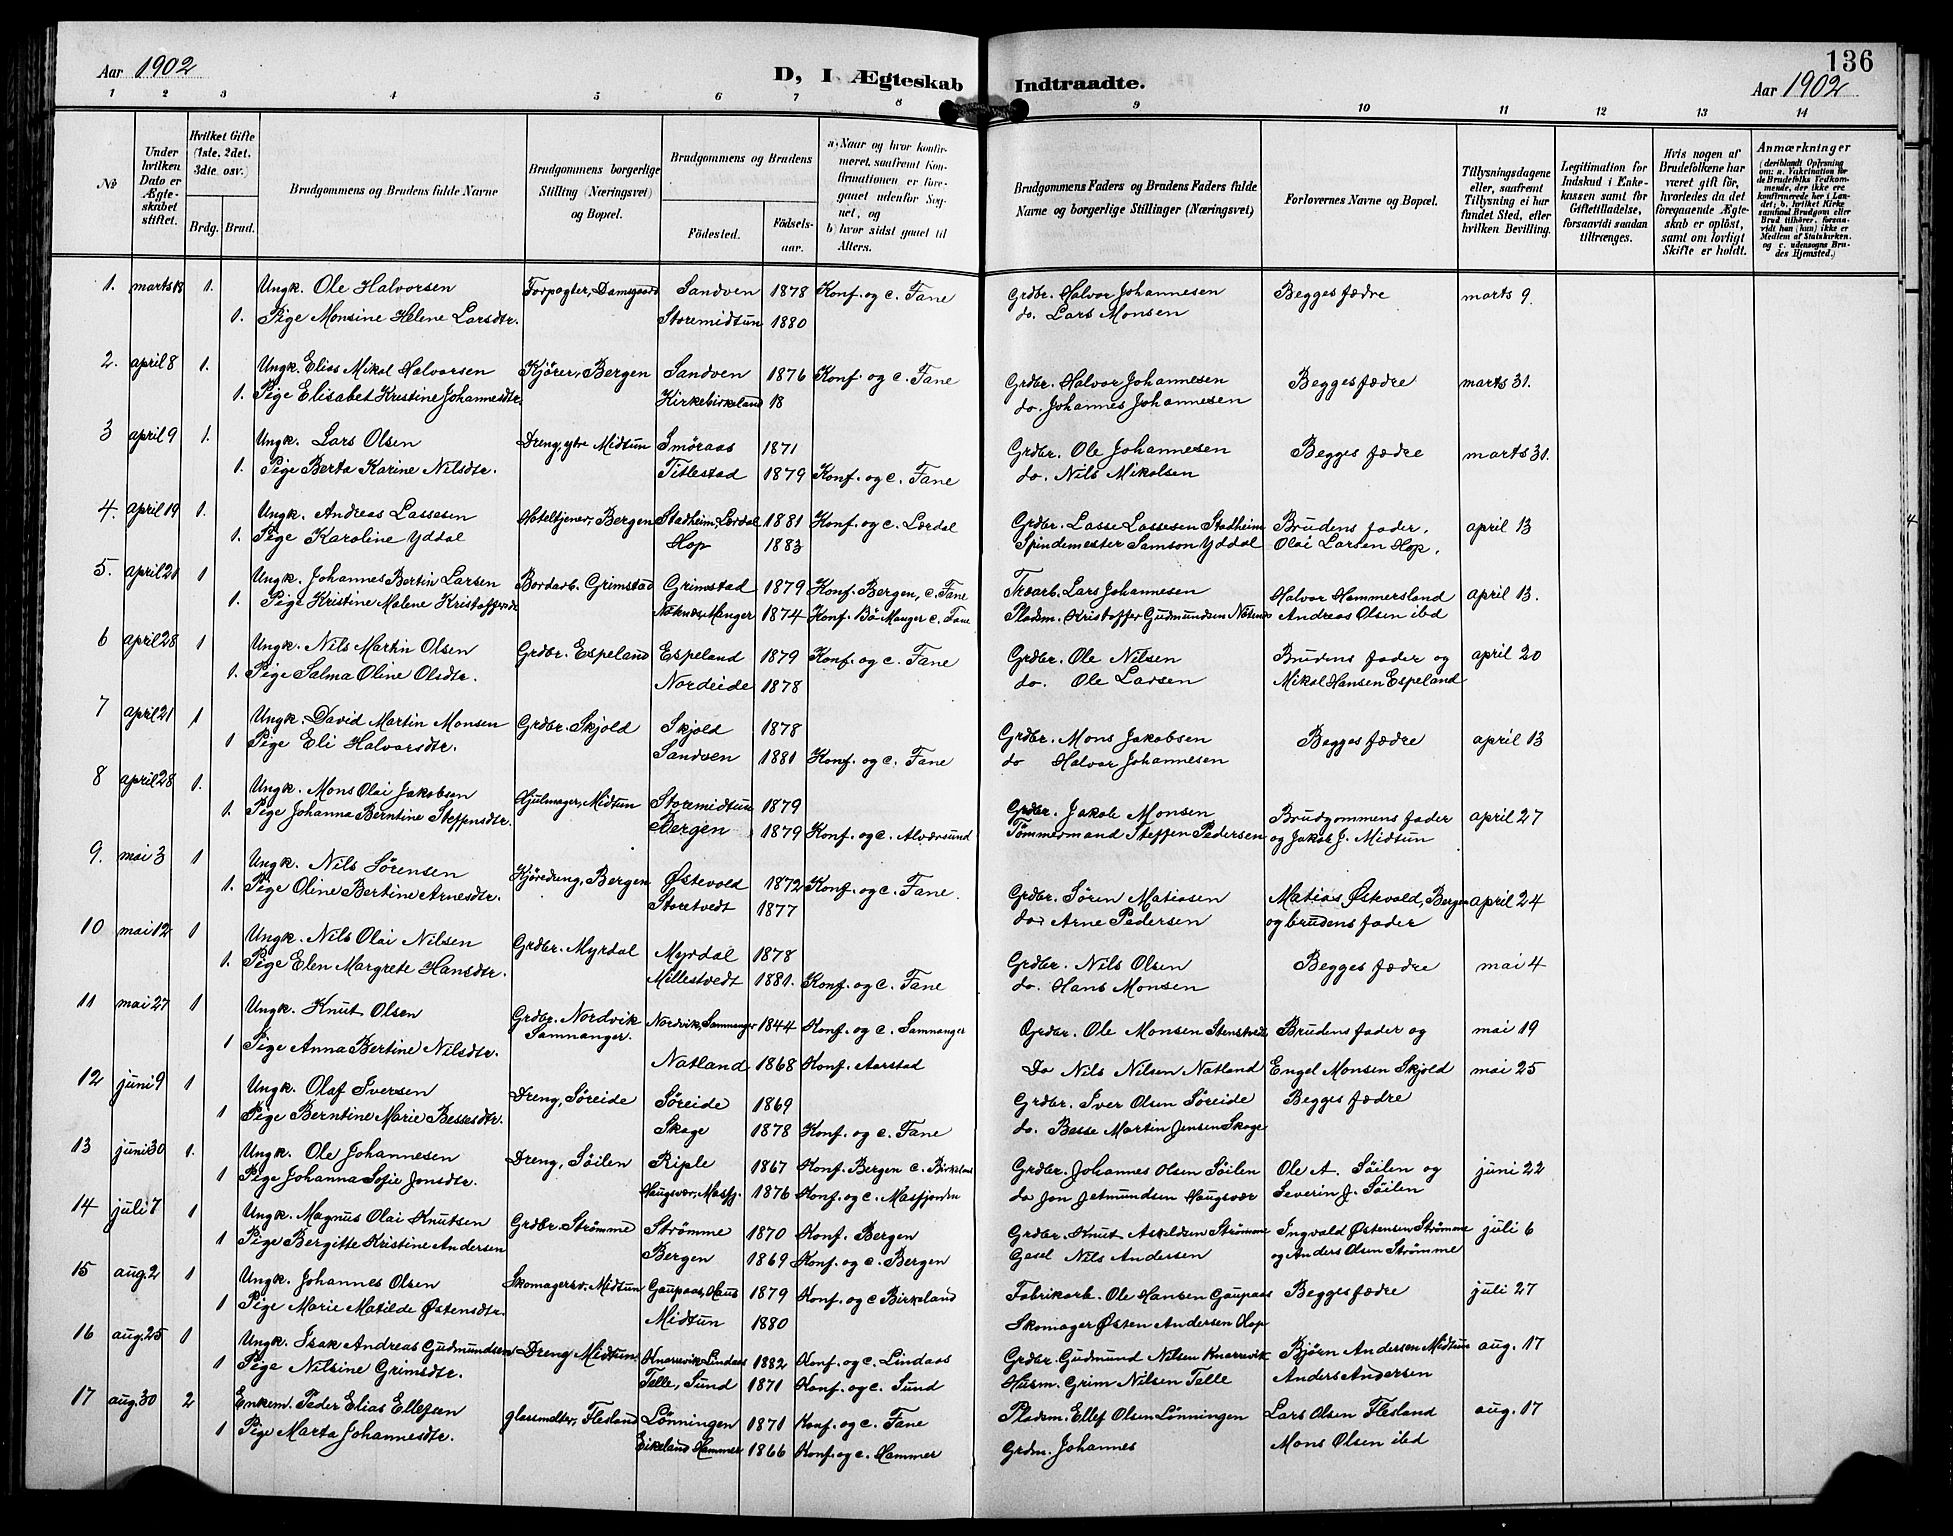 136
Aar 1902
D, I Ægteskab Indtraadte.
Aar 1902
1 2 3 4 5 6 7 8 9 10 11 12 13 14
No
Under hvilken Dato er Ægteskabet stiftet.
Hvilket Gifte (1ste, 2det, 3die osv.)
Brdg. Brud.
Brudgommens og Brudens fulde Navne
Brudgommens borgerlige Stilling (Næringsvei) og Bopæl.
Brudgommens og Brudens
Födested. Födselsaar.
a) Naar og hvor konfirmeret, saafremt Konfirmationen er foregaaet udenfor Sognet, og
b) hvor sidst gaaet til Alters.
Brudgommens Faders og Brudens Faders fulde Navne og borgerlige Stillinger (Næringsvei)
Forlovernes Navne og Bopæl.
Tillysningsdagene eller, saafremt Tillysning ei har fundet Sted, efter hvilken Bevilling.
Legitimation for Indskud i Enkekassen samt for Giftetilladelse, forsaavidt saadan tiltrænges.
Hvis nogen af Brudefolkene har været gift för, hvorledes da det foregaaende Ægteskab er oplöst, samt om lovligt Skifte er holdt.
Anmærkninger
(deriblandt Oplysning om: a. Vakcination for de Brudefolks Vedkommende, der ikke ere konfirmerede her i Landet; b. hvilket Kirkesamfund Brudgom eller Brud tilhörer, forsaavidt han (hun) ikke er Medlem af Statskirken, og c. udensogns Brudes Hjemsted.)
1. marts 18 1. Ungk. Ole Halvorsen Forpagter, Damsgaard Sandven 1878 Konf. og c. Fane Grdbr. Halvor Johannesen Begges fædre marts 9.
1. Pige Monsine Helene Larsdtr. Storemidtun 1880 do. Lars Monsen
2. april 8 1. Ungk. Elias Mikal Halvorsen Kjörer, Bergen Sandven 1876 Konf. og c. Fane Grdbr. Halvor Johannesen Begges fædre marts 31.
1. Pige Elisabet Kristine Johannesdtr. Kirkebirkeland 18 do. Johannes Johannesen
3 april 9 1. Ungk. Lars Olsen Dreng, ytre Midtun Smöraas 1871 Grdbr. Ole Johannesen Begges fædre marts 31.
1. Pige Berta Karine Nilsdtr. Titlestad 1879 Konf. og c. Fane do. Nils Mikalsen
4. april 19 1. Ungk. Andreas Lassesen Hoteltjener, Bergen Stadheim, Lærdal 1881 Konf. og c. Lærdal Grdbr. Lasse Lassesen Stadheim Brudens fader, april 13
1. Pige Karoline Yddal Hop 1883 Spindemester Samson Yddal Olai Larsen Hop,
5. april 21 1 Ungk. Johannes Bertin Larsen Bordarb. Grimstad Grimstad 1879 Konf. Bergen, c. Fane Træarb. Lars Johannesen Halvor Hammersland april 13.
1. Pige Kristine Malene Manger 1874 Konf. Bö-Manger c. Fane Pladsm. Kristoffer Gudmundsen Andreas Olsen ibd
6 april 28 1 Ungk. Nils Martin Olsen Grdbr. Espeland Espeland 1879 Konf. og c. Fane Grdbr. Ole Nilsen Brudens fader og april 20
1. Pige Salma Oline Olsdtr. Nordeide 1878 do. Ole Larsen Mikal Hansen Espeland
7 april 21 1 Ungk. David Martin Monsen Grdbr. Skjold Skjold 1878 Grdbr. Mons Jakobsen Begges fædre april 13
1 Pige Eli Halvorsdtr. Sandven 1881 Konf. og c. Fane do Halvor Johannesen
8 april 28 1. Ungk. Mons Olai Jakobsen Hjulmager, Midtun Storemidtun 1879 Grdbr. Jakob Monsen Brudgommens fader april 27
1. Pige Johanna Berntine Steffensdtr. Bergen 1879 Konf. og c. Alværsund Tömmermand Steffen Pedersen og Jakob J. Midtun
9. mai 3 1 Ungk. Nils Sörensen Kjöredreng, Bergen Östevold 1872 Konf. og c. Fane. Grdbr. Sören Matiasen Matias Östvold, Bergen april 24
1. Pige Oline Bertine Arnesdtr. Storetvedt 1877 do Arne Pedersen og brudens fader
10 mai 12 1 Ungk. Nils Olai Nilsen Grdbr. Myrdal Myrdal 1878 Grdbr. Nils Olsen Begges fædre mai 4
1. Pige Elen Margrete Hansdtr. Millestvedt 1881. Konf. og c. Fane do. Hans Monsen
11 mai 27 1 Ungk. Knut Olsen Grdbr. Nordvik Samnanger. Nordvik, Samnanger 1844 Konf. og c. Samnanger Grdbr. Ole Monsen Brudens fader og mai 19
1 Pige Anna Bertine Nilsdtr. Natland 1868 Konf. Aarstad Do Nils Nilsen Natland Engel Monsen Skjold mai 25
12 juni 9 1 Ungk. Olaf Iversen Dreng, Söreide Söreide 1869 Grdbr. Iver Olsen Söreide Begges fædre
1 Pige Berntine Marie Bessesdtr. Skage 1878 Konf. og c. Fane do. Besse Martin Jensen Skage
13 juni 30 1. Ungk. Ole Johannesen Dreng, Söilen Riple 1867 Konf. Bergen c. Birkeland Grdbr. Johannes Olsen Söilen Ole A. Söilen og juni 22
1 Pige Johanna Sofie Jonsdtr. Haugsvær, Masfj. 1876 Konf. og c. Masfjorden do Jon Jetmundsen Haugsvær Severin J. Söilen
14 juli 7 1 Ungk. Magnus Olai Knutsen Grdbr. Strömme Strömme 1870 Konf. Bergen Grdbr. Knut Askeldsen Strömme Ingvald Östensen Strömme juli 6
1 Pige Bergitte Kristine Andersen Bergen 1869 Konf. og c. Bergen Gasel Nils Andersen og Anders Olsen Strömme
15 aug. 2 1 Ungk. Johannes Olsen Skomagersv. Midtun Gaupaas, Haus 1879 Konf. og c Birkeland Fabrikarb. Ole Hansen Gaupaas Begges fædre juli 27
1 Pige Marie Matilde Östensdtr. Midtun 1880 Skomager Östen Andersen Hop
16 aug. 25 1 Ungk. Isak Andreas Gudmundsen Dreng Midtun Knarrevik Lindaas 1882 Konf. og c. Lindaas Grdbr. Gudmund Nilsen Knarrevik Björn Andersen Midtun aug. 17
1 Pige Nilsine Grimsdtr. Telle, Sund 1871 Konf. og c. Sund Husm. Grim Nilsen Telle Anders Andersen
17 aug. 30 2 Enkem. Peder Elias Ellefsen Flesland Lönningen 1871 Konf. og c. Fane Pladsm. Ellef Olsen Lönningen Lars Olsen Flesland aug. 17
1 Pige Marta Johannesdtr. Eikeland Hammer 1866 Konf. og c. Hammer Grdm. Johannes Mons Olsen ibd